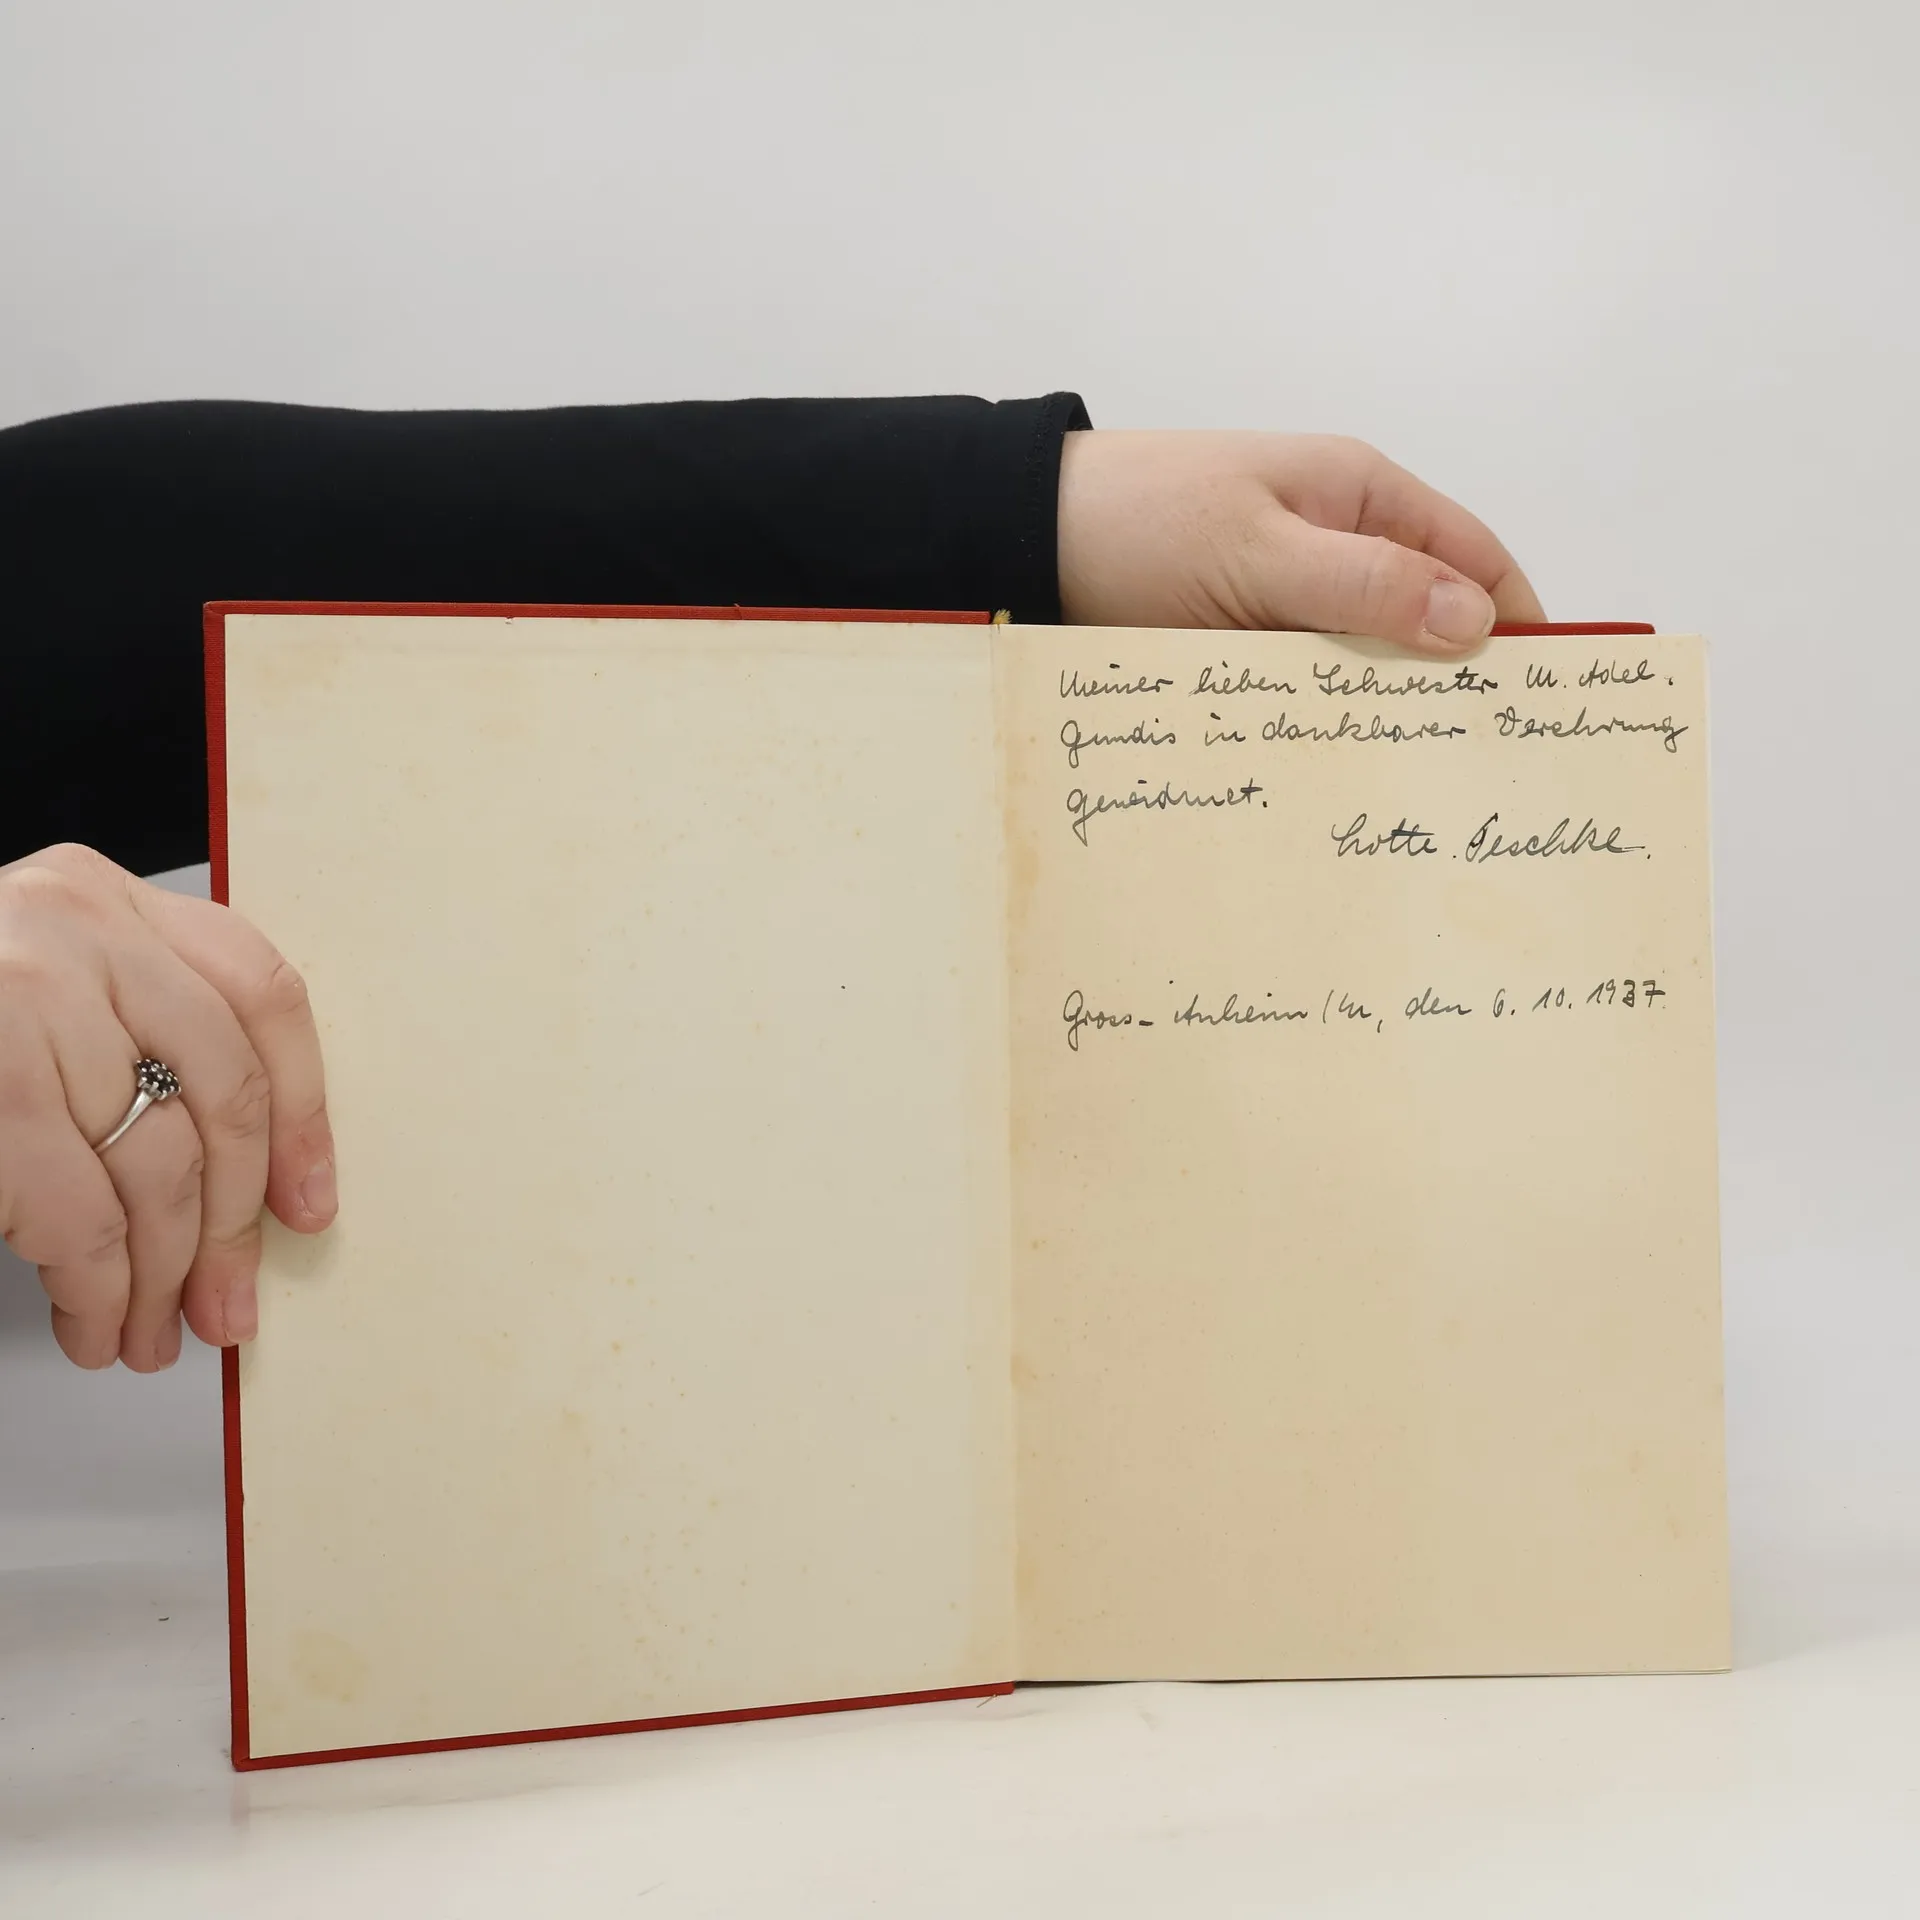 Meiner lieben Schwester M. Adel.
Gundis in dankbarer Verehrung
gewidmet.
Lotte Peschke.
Gross-Auheim /M, den 6. 10. 1937.